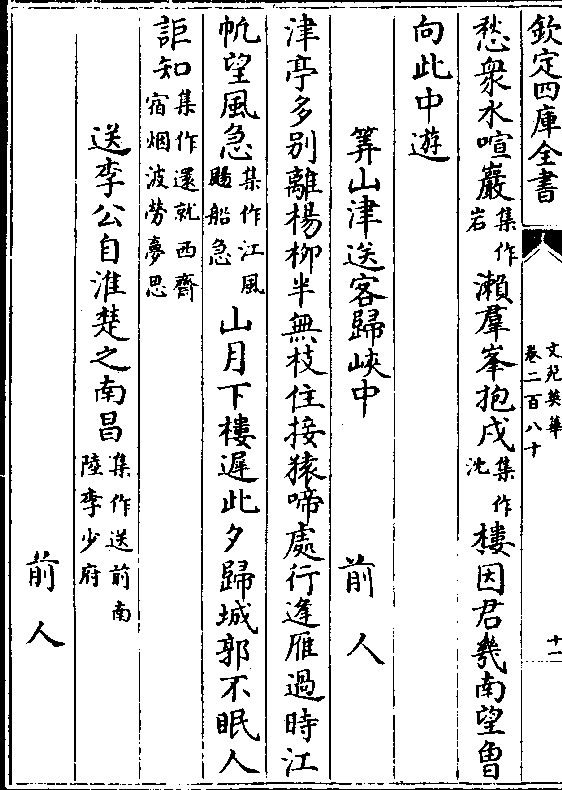 欽定四庫全書
文苑英華
卷二百八十
十一
愁衆水喧巖集作岩瀨羣峯抱戍集作沈樓因君幾南望曽
向此中遊
箅山津送客歸峽中 前人
津亭多别離楊柳半無枝住接猿啼處行逢雁過時江
帆望風急集作江風颺船急山月下樓遲此夕歸城郭不眠人
詎知集作還就西齋宿烟波勞夢思
送李公自淮楚之南昌集作送前南陸李少府
前人